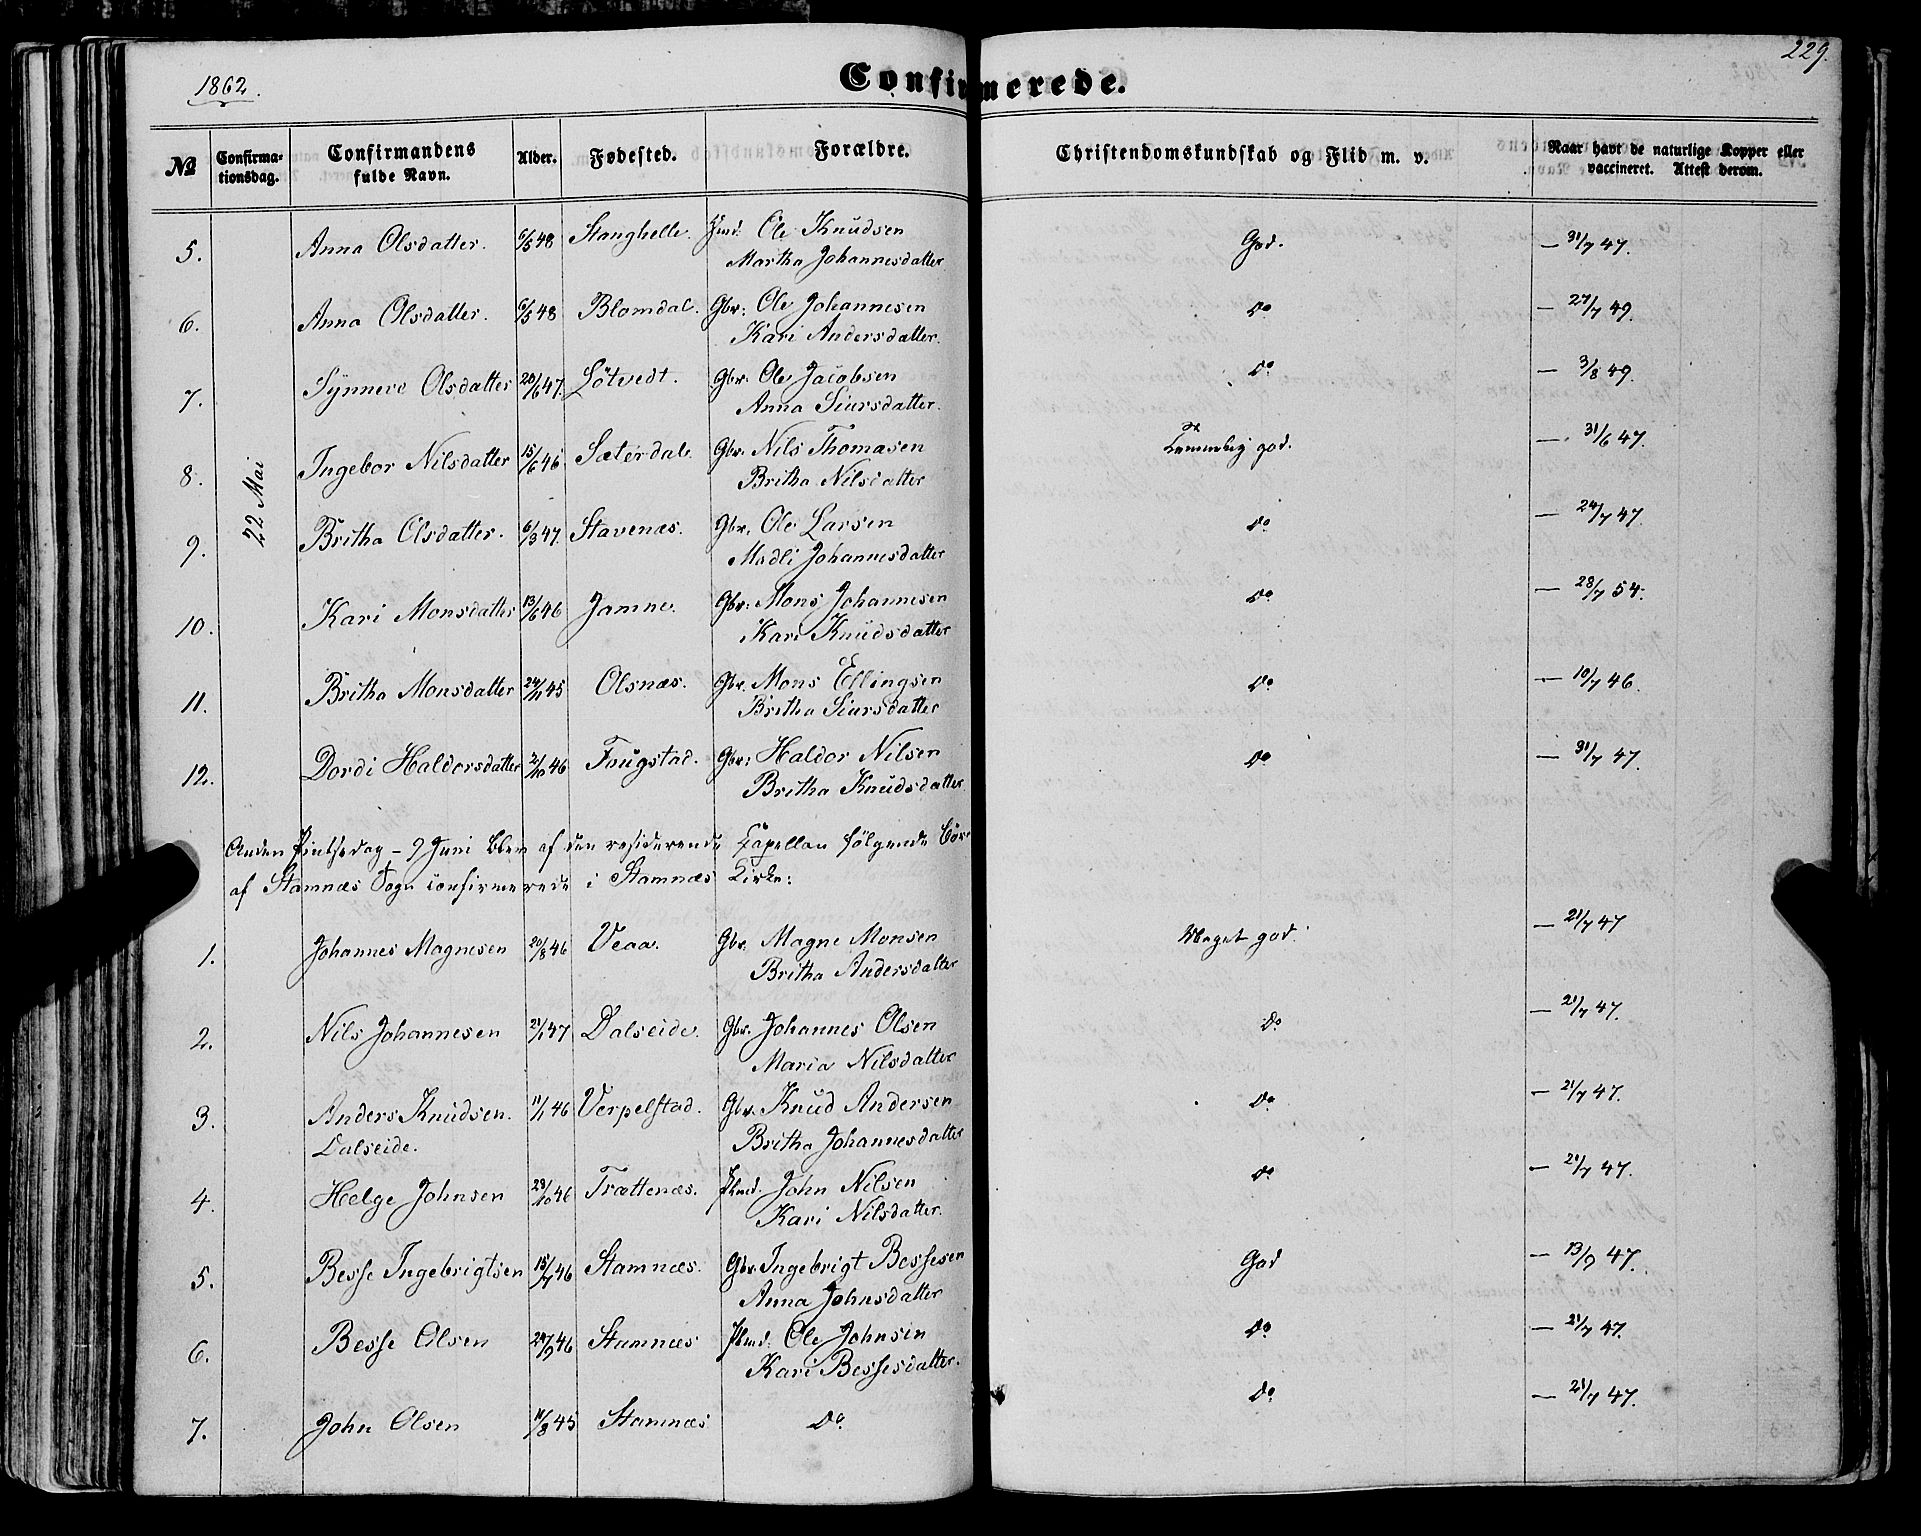 1862.
Confirmerede.
229.
№ Confirma- tionsdag. Confirmandens fulde Navn. Alder. Fødested. Forældre. Christendomskundskab og Flid m. v. Naar havt de naturlige Kopper eller vaccineret. Attest derom.
22 Mai
5. Anna Olsdatter. 6/5 48 Stanghelle. Ole Knudsen God. — 31/7 47.
Martha Johannesdatter
6. Anna Olsdatter. 6/5 48 Blomdal. Gbr: Ole Johannesen Do — 27/7 49.
Kari Andersdatter.
7. Synneve Olsdatter 20/6 47. Lötvedt. Gbr. Ole Jacobsen Do — 3/8 49.
Anna Siursdatter.
8. Ingebor Nilsdatter 15/6 46 Sæterdal. Gbr. Nils Thomasen Temmelig god. — 31/6 47.
Britha Nilsdatter
9. Britha Olsdatter. 6/3 47. Stavenæs. Gbr. Ole Larsen Do — 24/7 47.
Madli Johannesdatter
10. Kari Monsdatter 13/6 46 Jamne. Gbr: Mons Johannesen Do — 28/7 54.
Kari Knudsdatter
11. Britha Monsdatter 24/11 45 Olsnæs. Gbr. Mons Ellingsen Do — 10/7 46.
Britha Siursdatter
12. Dordi Haldorsdatter 2/10 46 Fugstad. Gbr: Haldor Nilsen Do — 31/7 47.
Britha Knudsdatter
Anden Pintsedag – 9 Juni blev af den residerende Capellan følgende Børn
af Stamnæs Sogn confirmerede i Stamnæs Kirke:
1. Johannes Magnesen 20/8 46 Veaa. Gbr. Magne Monsen Meget god. — 21/7 47
Britha Andersdatter
2. Nils Johannesen 21/1 47 Dalseide. Gbr. Johannes Olsen Do — 21/7 47.
Maria Nilsdatter
3. Anders Knudsen. 11/1 46 Verpelstad. Gbr. Knud Andersen Do — 21/7 47.
Dalseide. Britha Johannesdatter
4. Helge Johnsen 28/10 46 Trættenæs. Plmd. John Nilsen Do — 21/7 47.
Kari Nilsdatter.
5. Besse Ingebrigtsen 15/7 46 Stamnæs. Gbr. Ingebrigt Bessesen God — 13/9 47.
Anna Johnsdatter
6. Besse Olsen 29/9 46 Stamnæs Plmd. Ole Johnsen Do — 21/7 47.
Kari Bessesdatter.
7. John Olsen 11/8 45 Stamnæs Do. Do — 21/7 47.